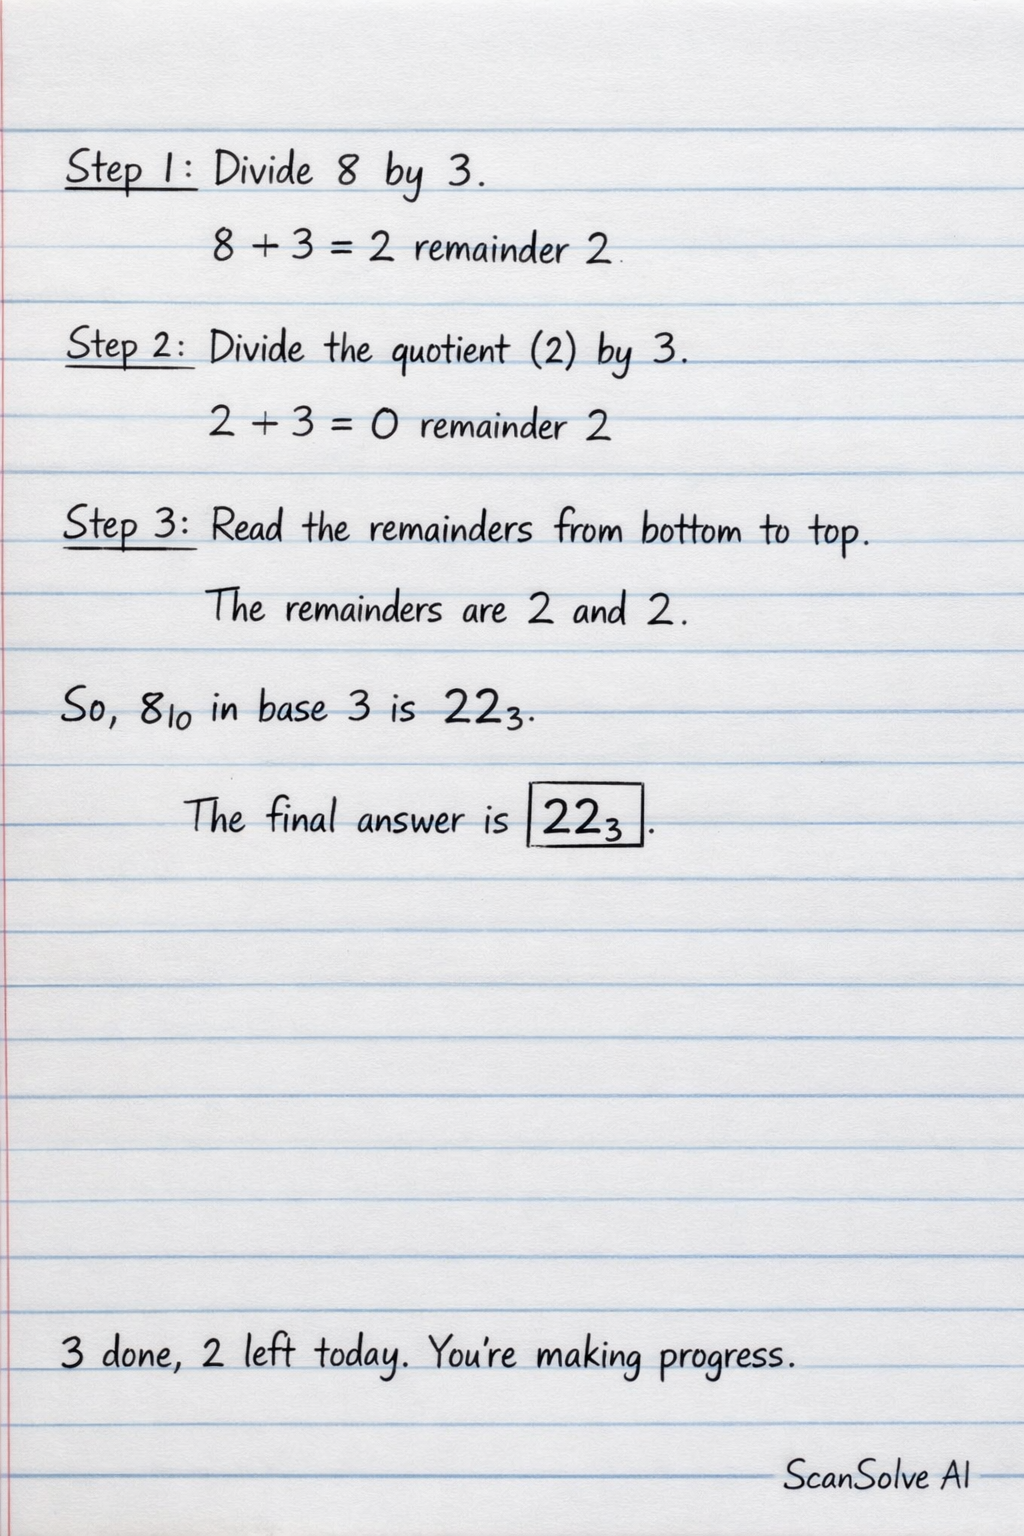 Step 1: Divide 8 by 3.
8 + 3 = 2 remainder 2.
Step 2: Divide the quotient (2) by 3.
2 + 3 = 0 remainder 2
Step 3: Read the remainders from bottom to top.
The remainders are 2 and 2.
So, 8₁₀ in base 3 is 22₃.
The final answer is 22₃.
3 done, 2 left today. You're making progress.
ScanSolve AI